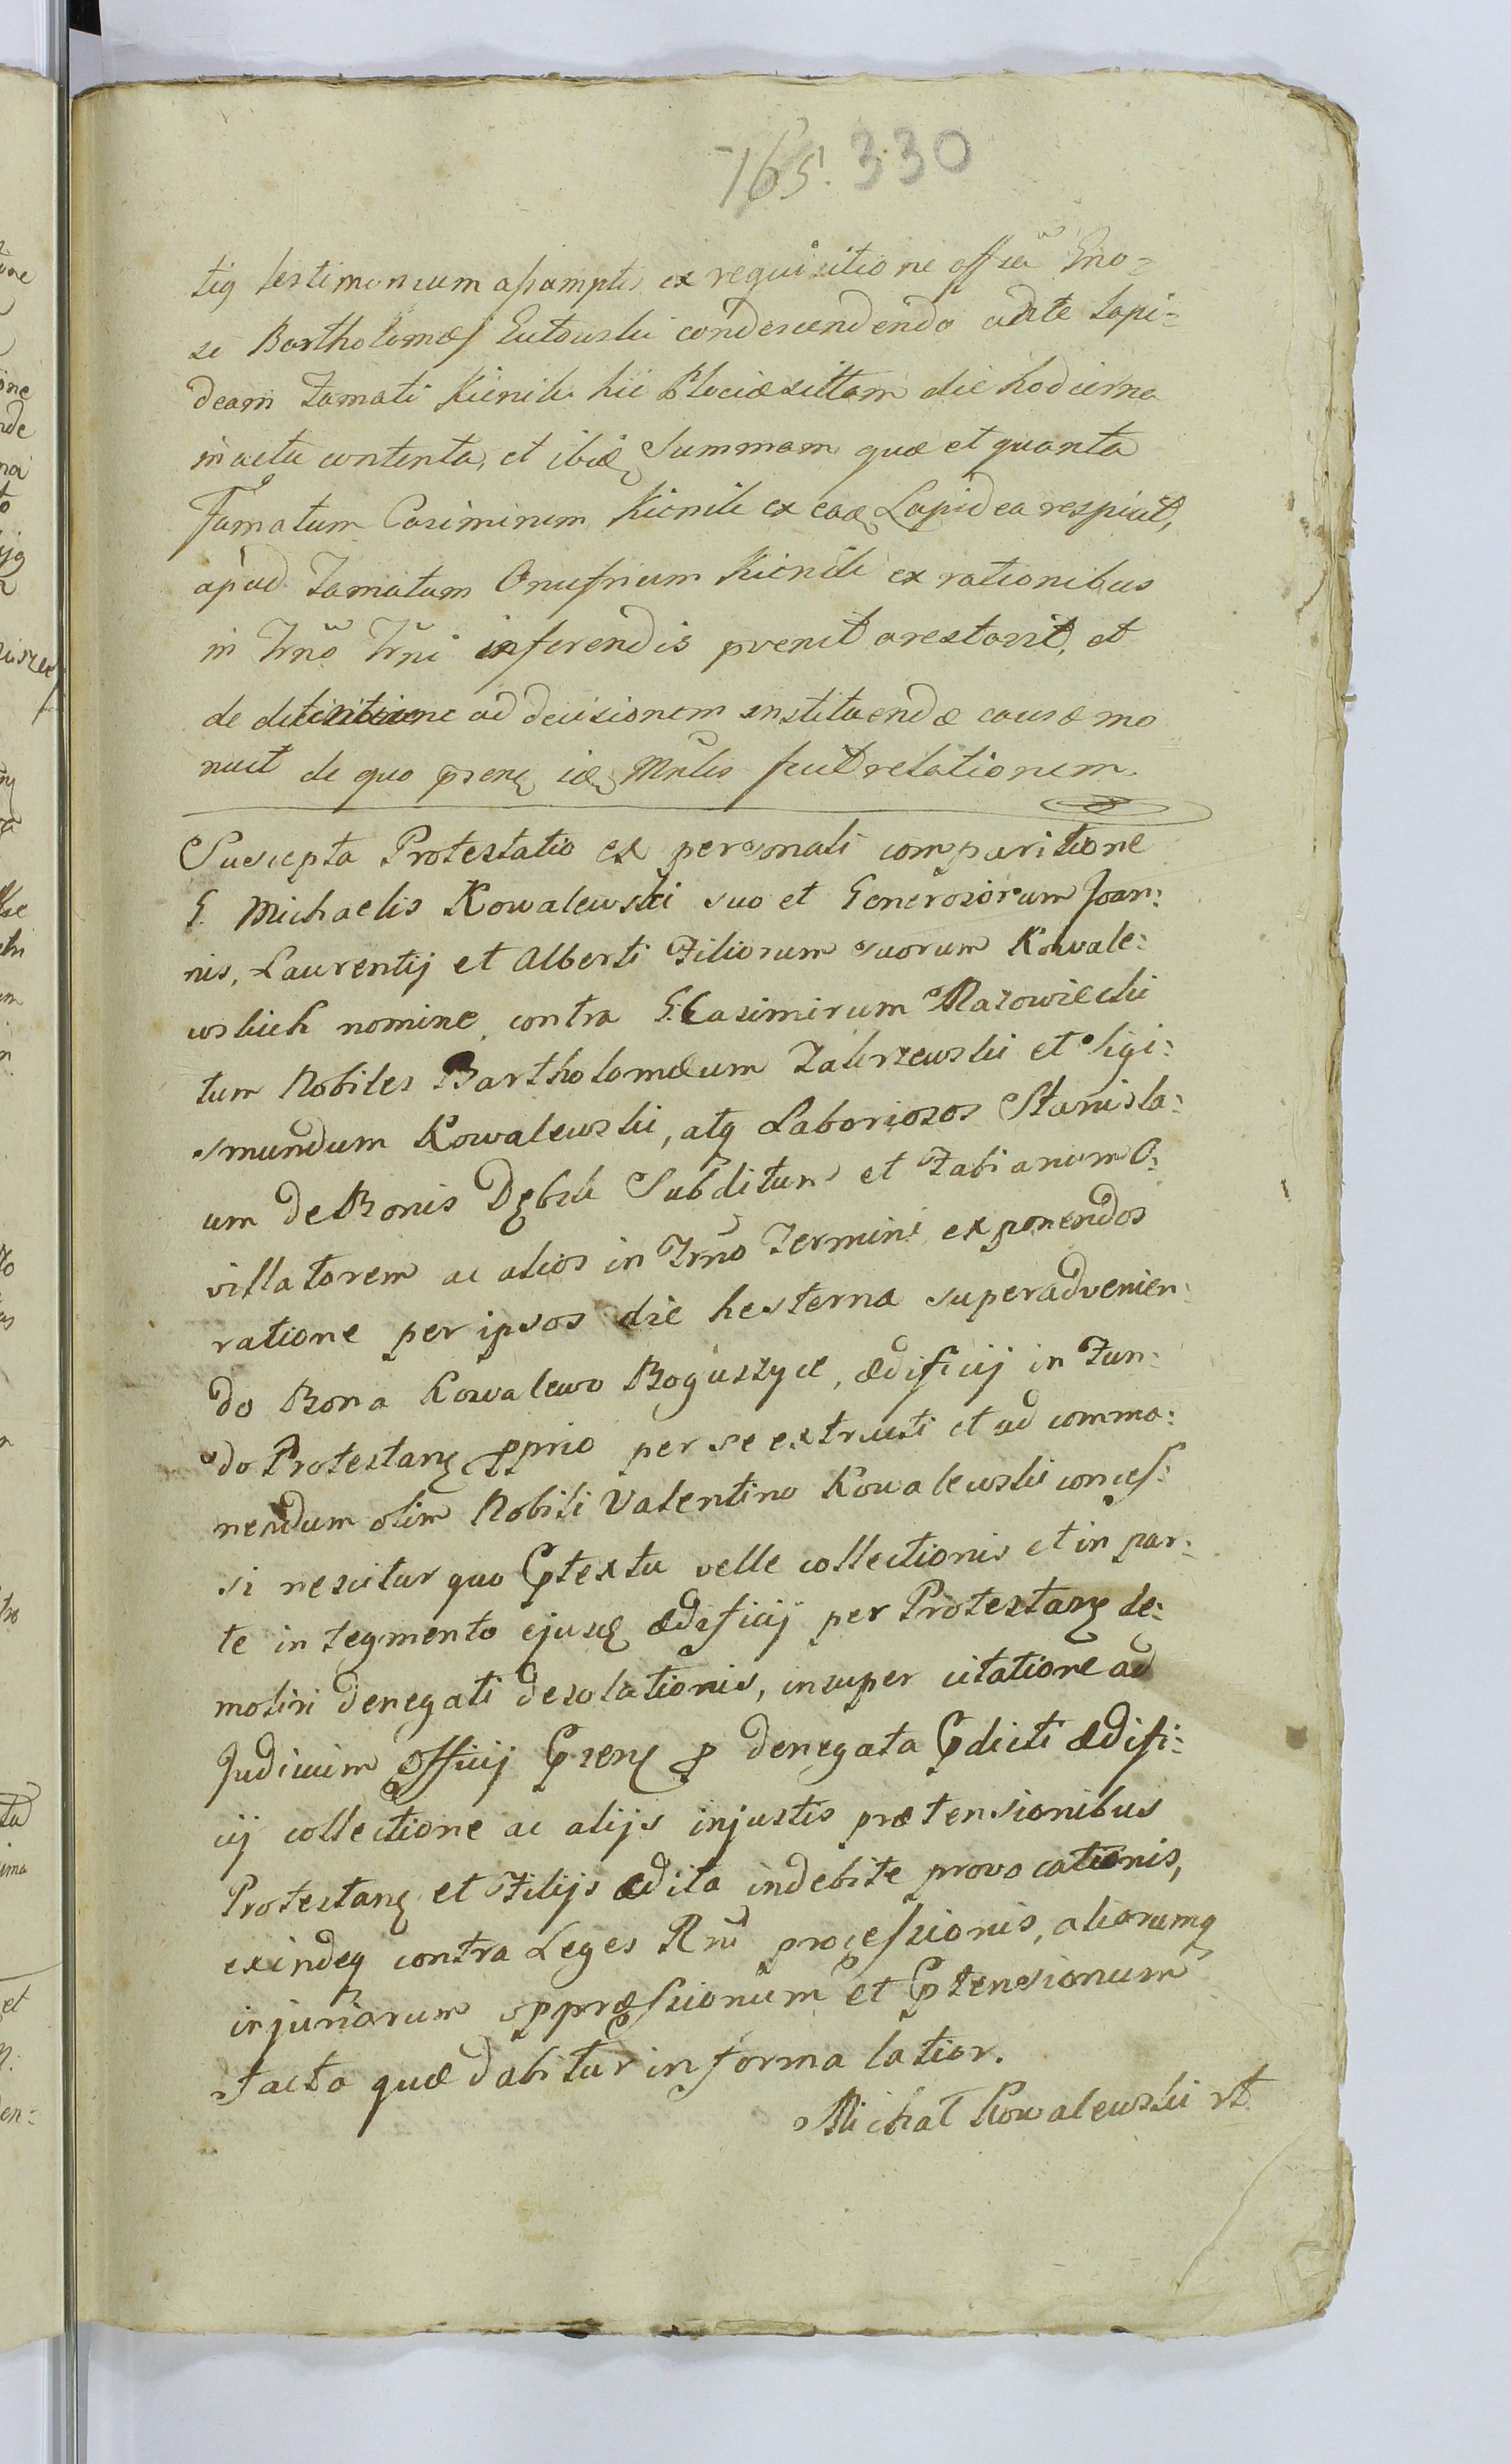 165. 330
tiq testimonium assumptis ex requisitione officii Gno-
si Bartholomæi Gutowski condescendendo ad Lapi-
deam Famati Kienik hic Plociæ sittam die hodierna
in actu contenta, et ibidē Summam quæ et quanta
Famatum Casimirum Kienik ex eadē Lapidea respicit,
apud Famatum Onufrium Kienik ex rationibus
in Trno Trni inferendis pvenit arestavit, et
de detentione ad decisionem instituendæ causæ mo
nuit de quo pnens idē Mnlis fecit relationem.
Suscepta Protestatio ex personali comparitione
G. Michaelis Kowalewski suo et Generosorum Joan:
nis, Laurentij et Alberti Filiorum suorum Kowale:
wskich nomine contra G. Casimirum Mazowiecki
tum Nobiles Bartholomæum Zakrzewski et Sigi:
smundum Kowalewski, atq Laboriosos Stanisla:
um de Bonis Dębsk Subditum et Fabianum O:
villatorem ac alios in Trno Termini exponendos
ratione per ipsos die hesterna superadvenien:
do Bona Kowalewo Boguszyce, ædificij in Fun:
do Protestans pprio per se extructi et ad commo:
nendum olim Nobili Valentino Kowalewski conces:
si nescitur quo ptextu velle collectionis et in par:
te in tegmento ejusd ædificij per Protestans de:
moliri denegati desolationis, insuper citatione ad
Judicium Officij psens p denegata pdicti ædifi:
cij collectione ac alijs injustis prætensionibus
Protestans et Filijs ædita indebite provocationis,
exindeq contra Leges Rni processionis, aliorumq
injuriarum oppræssionum et ptensionum
facta quæ dabitur in forma latior.
Michał Kowalewski rt